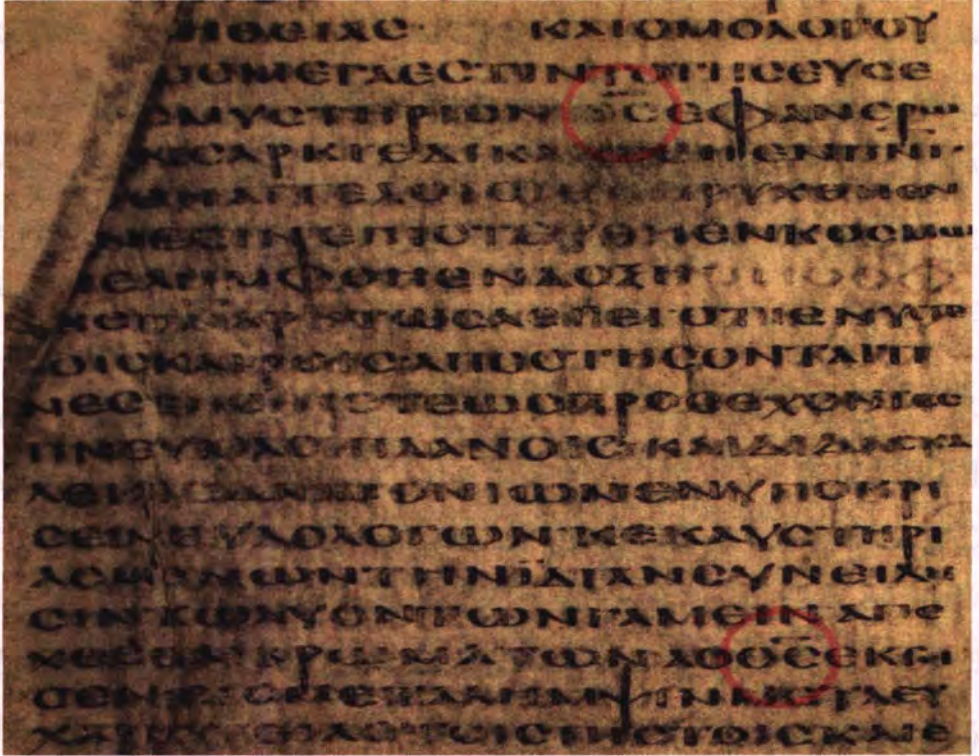 ΗΘΕΙΑϹ· ΚΑΙΟΜΟΛΟΓΟΥ
ΜΕΓΑΕϹΤΙΝΤΟΤΗϹΕΥϹΕ
ΜΥϹΤΗΡΙΟΝΘ̅Ϲ̅ΕΦΑΝΕΡΩ
ΕΝϹΑΡΚΙΕΔΙΚΑΙΩΘΗΕΝΠ̅Ν̅Ι̅·
ΑΓΓΕΛΟΙϹΕΚΗΡΥΧΘΗΕΝ
ΝΕϹΙΝΕΠΙϹΤΕΥΘΗΕΝΚΟϹΜΩ
ΕΛΗΜΦΘΗΕΝΔΟΞΗ
ΡΗΤΩϹΛΕΓΕΙΟΤΙΕΝΥϹΤΕ
ΡΟΙϹΚΑΙΡΟΙϹΑΠΟϹΤΗϹΟΝΤΑΙΤΙ
ΝΕϹΤΗϹΠΙϹΤΕΩϹΠΡΟϹΕΧΟΝΤΕϹ
ΠΝΕΥΜΑϹΙΠΛΑΝΟΙϹ·ΚΑΙΔΙΔΑϹΚΑ
ΛΕΙΑΙϹΔΑΙΜΟΝΙΩΝΕΝΥΠΟΚΡΙ
ϹΕΙΨΕΥΔΟΛΟΓΩΝΚΕΚΑΥϹΤΗΡΙ
ΑϹΜΕΝΩΝΤΗΝΪΔΙΑΝϹΥΝΕΙΔΗ
ϹΙΝΚΩΛΥΟΝΤΩΝΓΑΜΕΙΝΑΠΕ
ΧΕϹΘΑΙΒΡΩΜΑΤΩΝΑΟΘ̅Ϲ̅ΕΚΤΙ
ϹΕΝΕΙϹΜΕΤΑΛΗΜΨΙΝΜΕΤΑΕΥ
ΧΑΡΙϹΤΙΑϹΤΟΙϹΠΙϹΤΟΙϹΚΑΙΕ